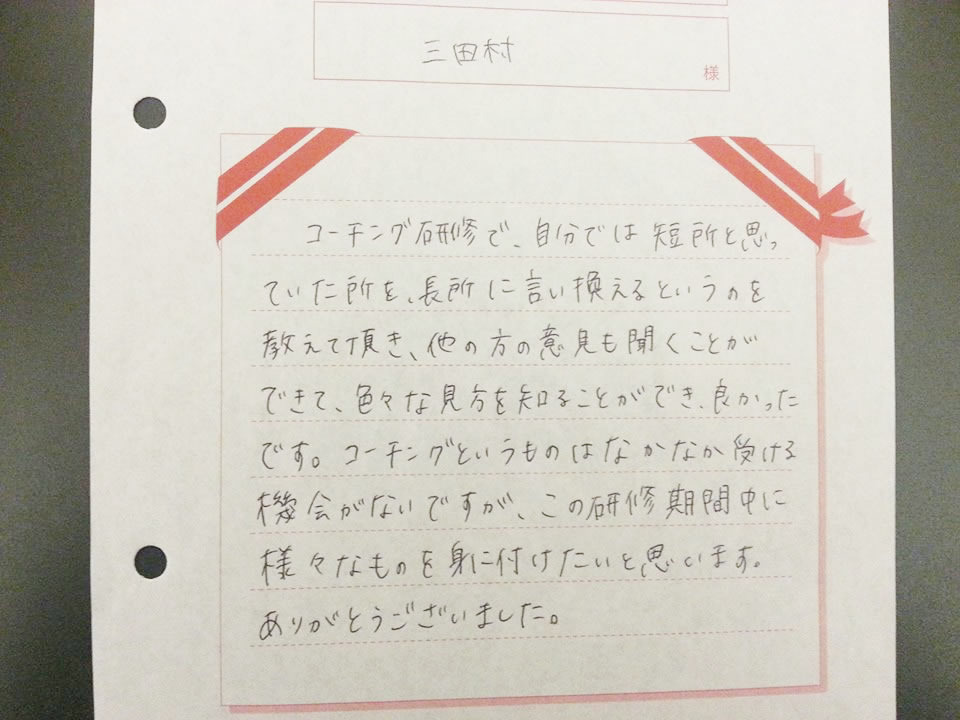 三田村
様
コーチング研修で、自分では短所と思っ
ていた所を、長所に言い換えるというのを
教えて頂き、他の方の意見も聞くことが
できて、色々な見方を知ることができ、良かった
です。コーチングというものはなかなか受ける
機会がないですが、この研修期間中に
様々なものを身に付けたいと思います。
ありがとうございました。